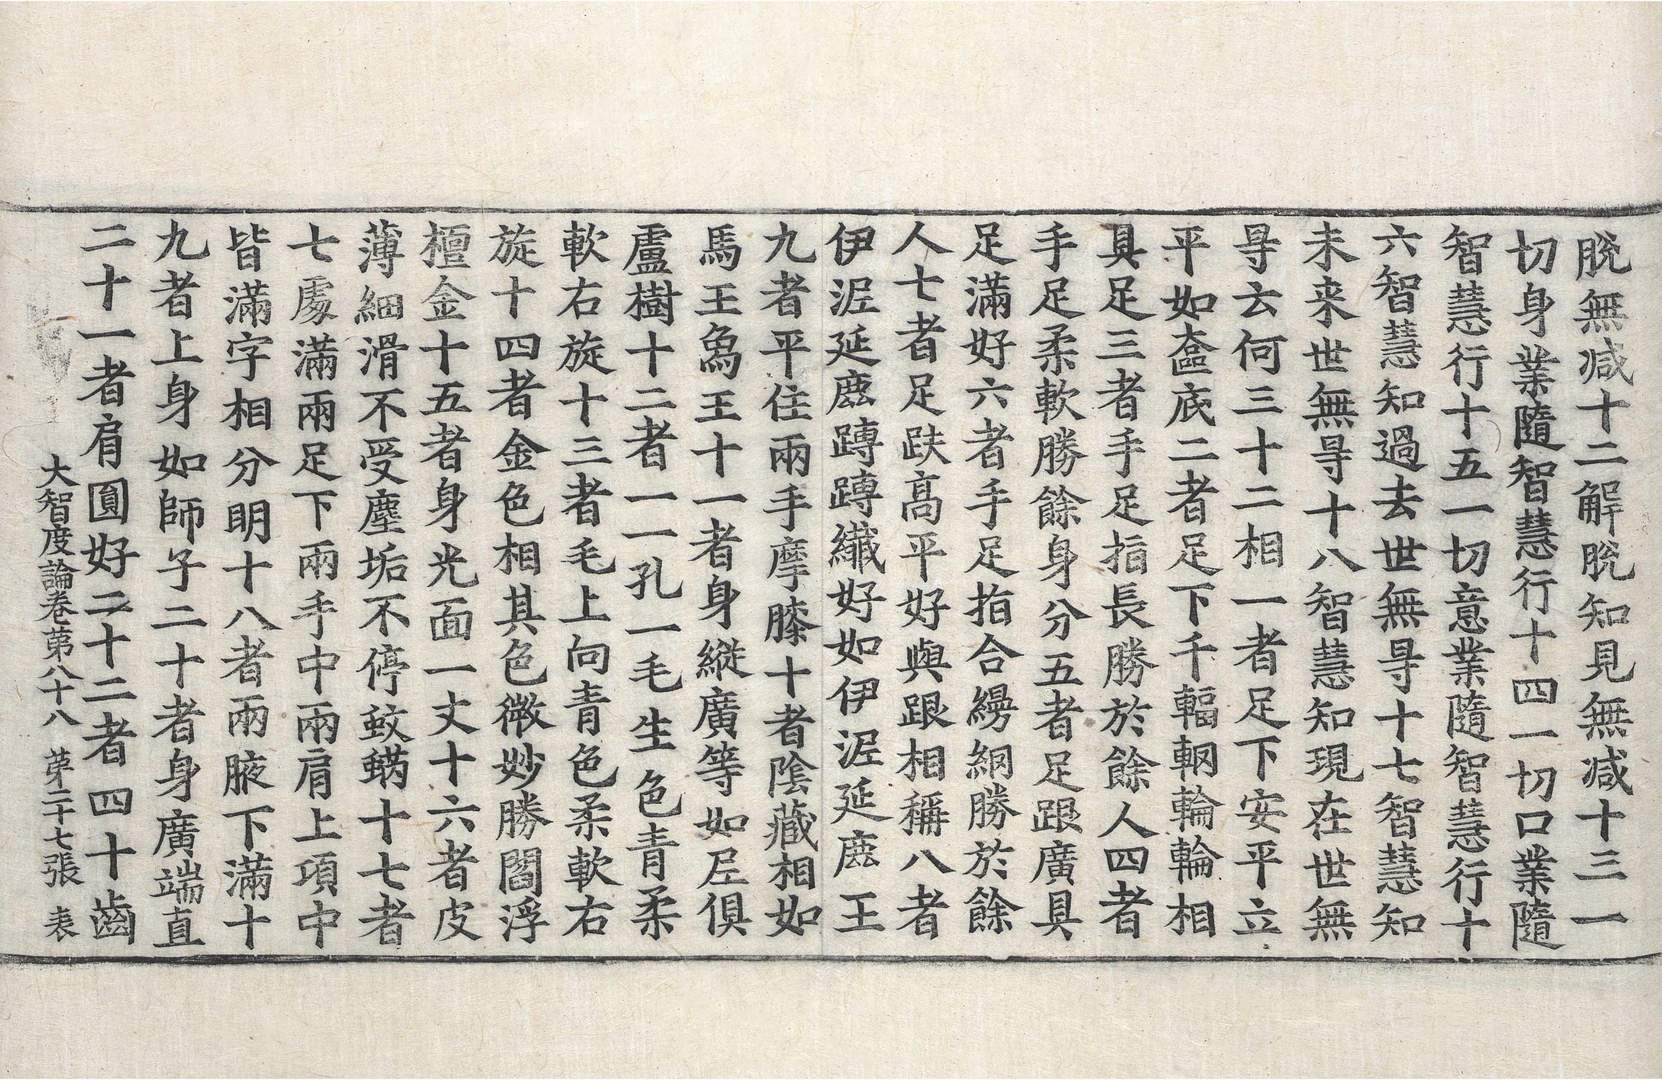 脫無減十二解脫知見無減十三一
切身業隨智慧行十四一切口業隨
智慧行十五一切意業隨智慧行十
六智慧知過去世無㝵十七智慧知
未来世無㝵十八智慧知現在世無
㝵云何三十二相一者足下安平立
平如奩底二者足下千輻輞輪輪相
具足三者手足指長勝於餘人四者
手足柔軟勝餘身分五者足跟廣具
足滿好六者手足指合縵網勝於餘
人七者足趺高平好與跟相稱八者
伊泥延鹿蹲蹲纖好如伊泥延鹿王
九者平住兩手摩膝十者陰藏相如
馬王象王十一者身縱廣等如尼俱
盧樹十二者一一孔一毛生色青柔
軟右旋十三者毛上向青色柔軟右
旋十四者金色相其色微妙勝閻浮
檀金十五者身光面一丈十六者皮
薄細滑不受塵垢不停蚊蜹十七者
七處滿兩足下兩手中兩肩上項中
皆滿字相分明十八者兩腋下滿十
九者上身如師子二十者身廣端直
二十一者肩圓好二十二者四十齒
大智度論卷第八十八 第二十七張 表